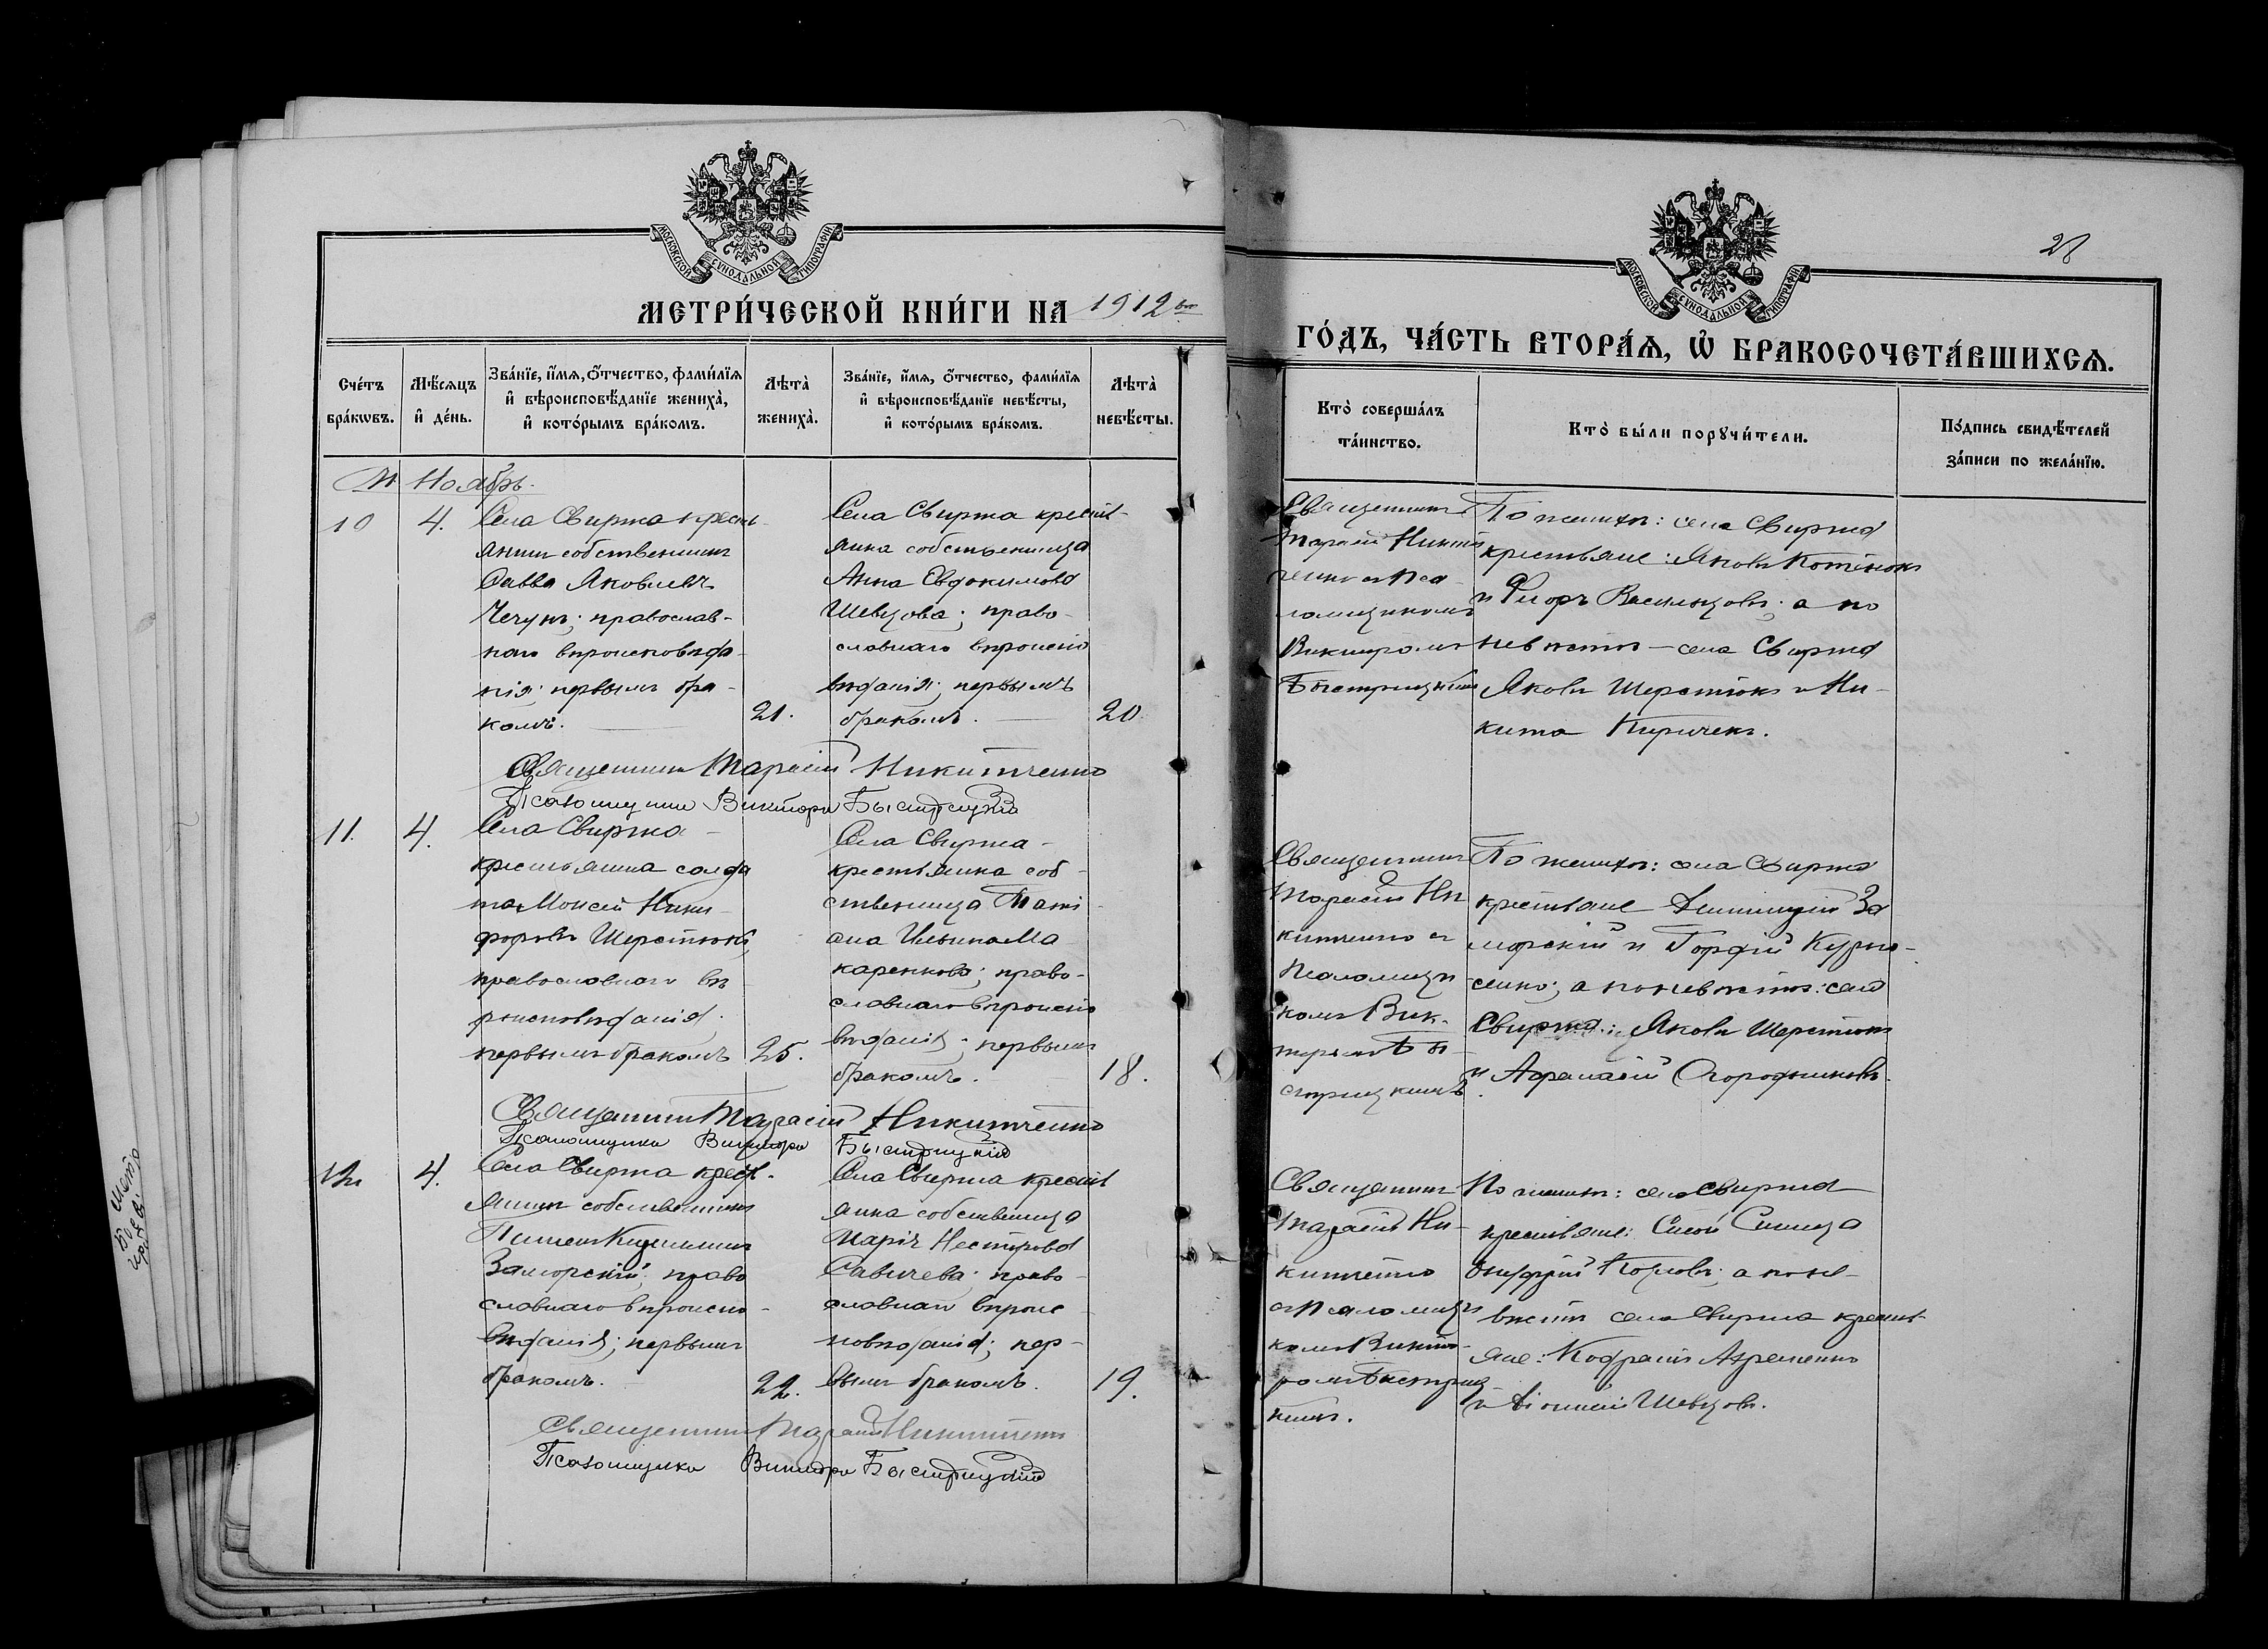 МЕТРИ́ЧЕСКОЙ КНИ́ГИ НА 1912 ГО́ДЪ, ЧА́СТЬ ВТОРА́Ѧ, Ѽ БРАКОСОЧЕТА́ВШИХСѦ.
28
МОСКОВСКОЙ СѴНОДАЛЬНОЙ ТИПОГРАФІИ
МОСКОВСКОЙ СѴНОДАЛЬНОЙ ТИПОГРАФІИ
Сче́тъ бра́кѡвъ.
Мѣ́сяцъ и҆ де́нь.
Зва́нїе, и҆́мя, ѻ҆́тчество, фами́лїя
и҆ вѣроисповѣ́данїе жениха̀,
и҆ кото́рымъ бра́комъ.
Лѣта̀ жениха̀.
Зва́нїе, и҆́мя, ѻ҆́тчество, фами́лїя
и҆ вѣроисповѣ́данїе невѣ́сты,
и҆ кото́рымъ бра́комъ.
Лѣта̀ невѣ́сты.
Кто̀ соверша́лъ
та́инство.
Кто̀ бы́ли порꙋчи́тели.
По́дпись свидѣ́телей
за́писи по жела́нїю.
М. Ноябрь.
10
4.
Села Свиржа кресть-
янинъ собственникъ
Савва Яковлевъ
Чечунъ; православ-
наго вѣроисповѣда-
нія; первымъ бра-
комъ.
21.
Села Свиржа кресть-
янка собственница
Анна Евдокимова
Шевцова; право-
славнаго вѣроиспо
вѣданія; первымъ
бракомъ.
20
Священникъ
Тарасій Никит
ченко съ Пса-
ломщикомъ
Викторомъ
Быстрицкимъ
По женихѣ: села Свиржа
крестьяне: Яковъ Котенокъ
и Флоръ Васильцовъ; а по
невѣстѣ – села Свиржа
Яковъ Шерстюкъ и Ни-
кита Кириченъ.
Священникъ Тарасій Никитченко
Псаломщикъ Викторъ Быстрицкій
11.
4.
Села Свиржа
крестьянинъ солда
тъ Моисей Ники-
форовъ Шерстюкъ;
православнаго вѣ
роисповѣданія;
первымъ бракомъ
25.
Села Свиржа-
крестьянка соб-
ственница Тати-
ана Ильина Ма
каренкова; право-
славнаго вѣроиспо
вѣданія; первымъ
бракомъ.
18.
Священникъ
Тарасій Ни
китченко съ
Псаломщи
комъ Вик-
торомъ Бы-
стрицкимъ.
По женихѣ: села Свиржа
крестьяне За
морскій и Гордій
а по невѣстѣ: села
Свиржа: Яковъ Шерстюкъ
и Афанасій Огородниковъ.
Священникъ Тарасій Никитченко
Псаломщикъ Викторъ Быстрицкій
12
4.
Села Свиржа крест-
янинъ собственникъ
Заморскій; право
славнаго вѣроиспо-
вѣданія; первымъ
бракомъ.
22.
Села Свиржа кресть
янка собственница
Марія Нестерова
Савичева; право-
славнаго вѣроис
повѣданія; пер-
вымъ бракомъ.
19.
Священникъ
Тарасій Ни-
китченко
съ Псаломщи
комъ Викто-
ромъ Быстриц
кимъ.
По женихѣ: села Свиржа
крестьяне: Синица
а по не-
вѣстѣ села Свиржа кресть-
яне: Кодратъ
и Діонисій Шевцовъ.
Священникъ Тарасій Никитченко
Псаломщикъ Викторъ Быстрицкій